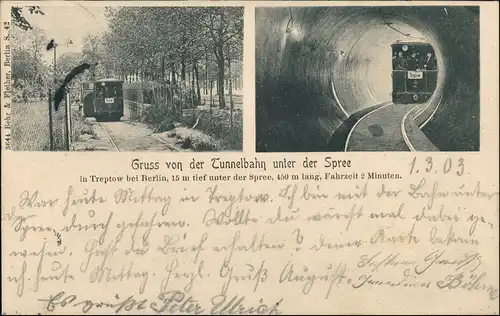 3644 Behr & Fleiher, Berlin S. 42
Treptow
Gruss von der Tunnelbahn unter der Spree
in Treptow bei Berlin, 15 m tief unter der Spree, 450 m lang, Fahrzeit 2 Minuten.
1.3.03
War heute Mittag in Treptow. Ich bin mit der Bahn unter
Spree durch gefahren. Wollte du wärst mal dabei ge-
wesen. Hast du Brief erhalten? deine Karte bekam
ich heute Mittag. Herzl. Gruß August.
Gruß
Es grüßt Peter Ulrich